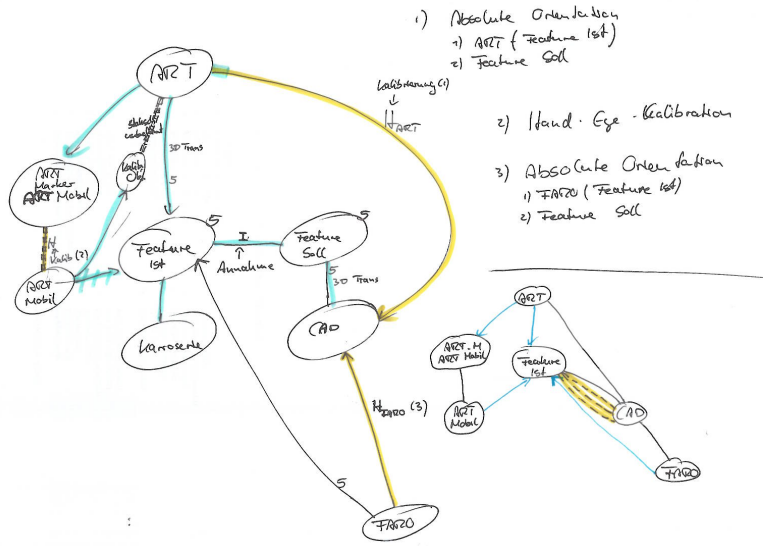 1) Absolute Orientation
1) ART (Feature Ist)
2) Feature Soll
2) Hand-Eye-Kalibration
3) Absolute Orientation
1) FARO (Feature Ist)
2) Feature Soll
ART
Kalibrierung (1)
H ART
3D Trans
5
Kalib.
Obj.
ART
Marker
ART Mobil
H
Kalib (2)
ART
Mobil
5
Feature
Ist
I
Annahme
5
Feature
Soll
5
3D Trans
Karosserie
CAD
H FARO (3)
5
FARO
ART
ART.M
ART Mobil
Feature
Ist
ART
Mobil
CAD
FARO